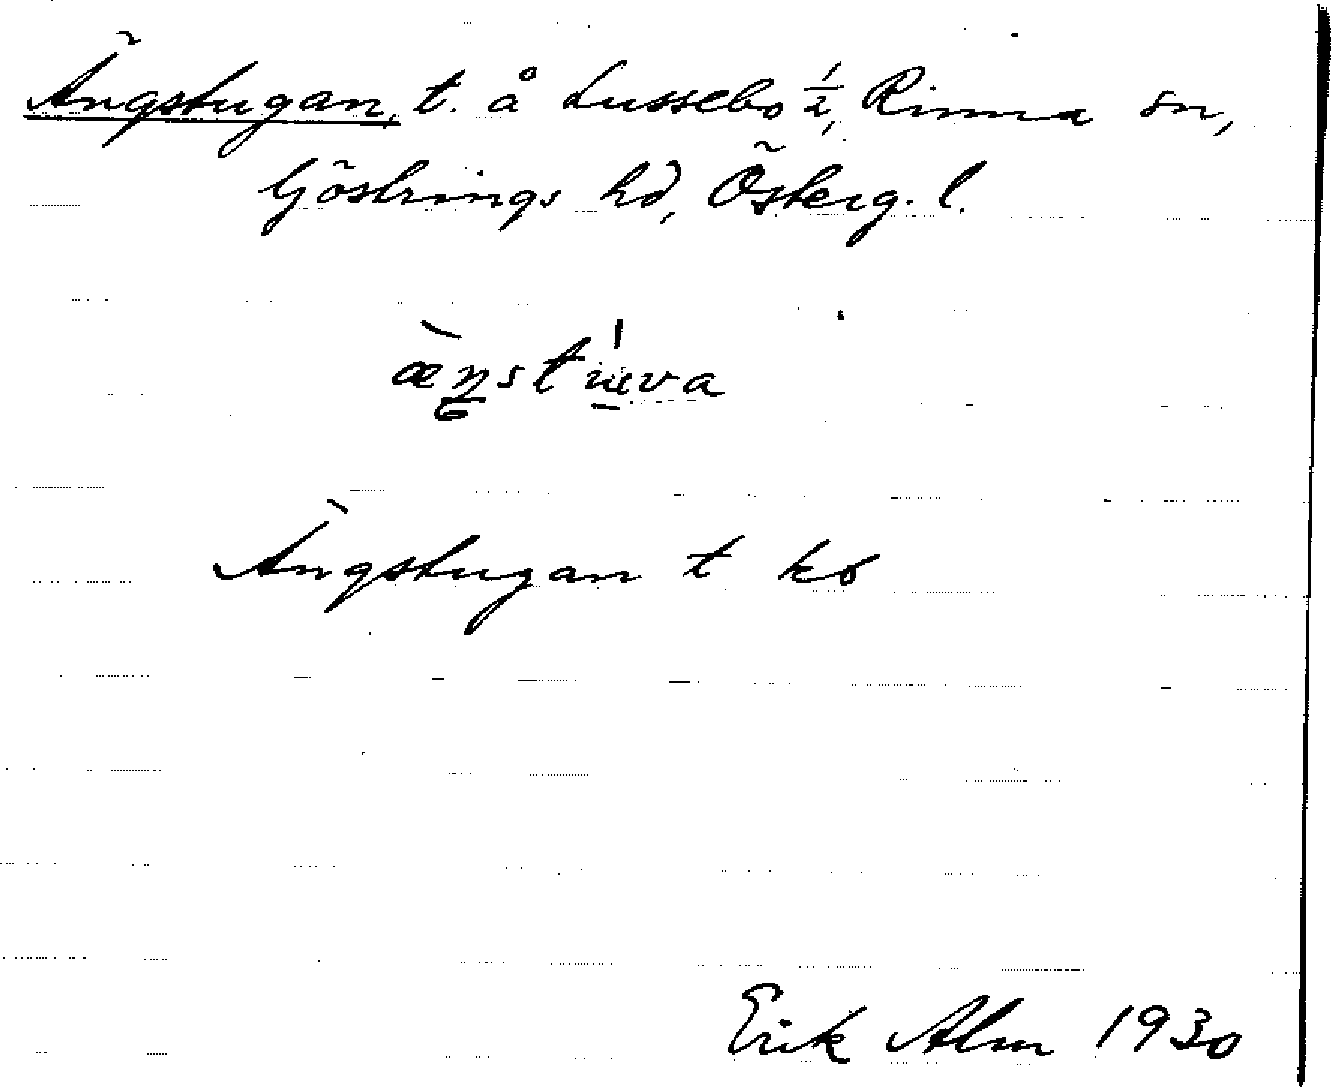 Ängstugan, t. å Lussebo 1/2, Rinna sn,
Göstrings hd, Österg. l.
æ̀ŋstu̍va
Ängstugan t kb
Erik Alm 1930